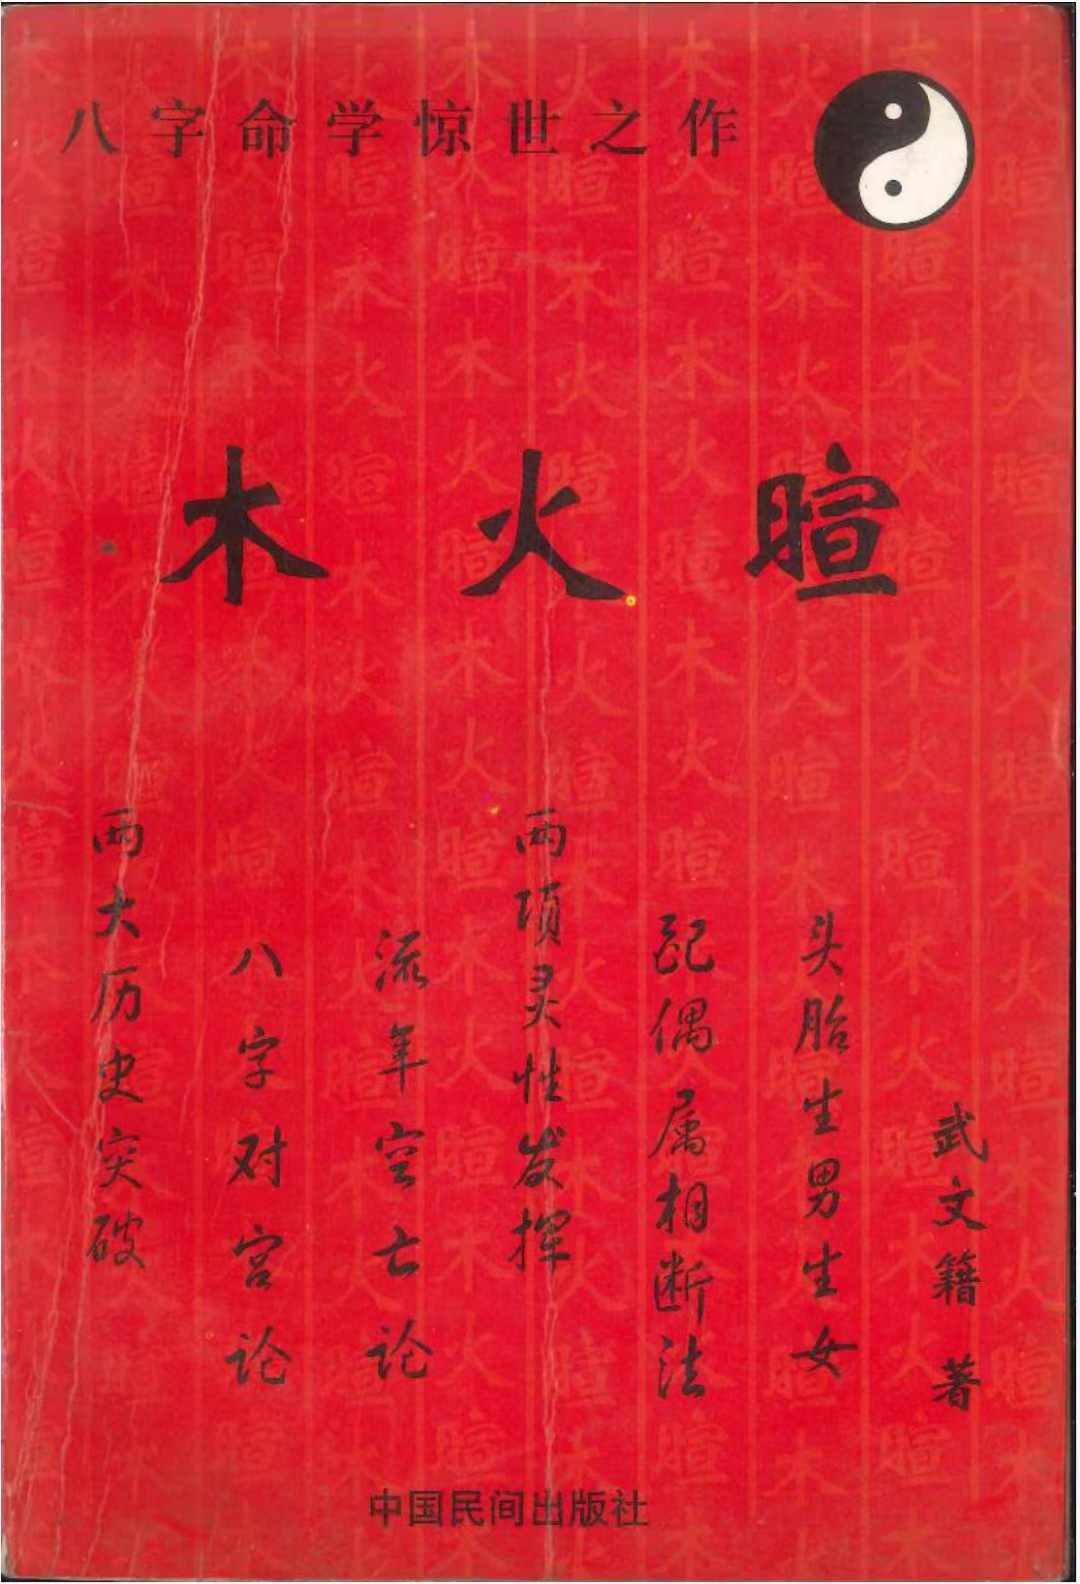 八字命学惊世之作
木火暄
两大历史突破
八字对宫论
流年空亡论
两项灵性发挥
配偶属相断法
头胎生男生女
武文籍 著
中国民间出版社